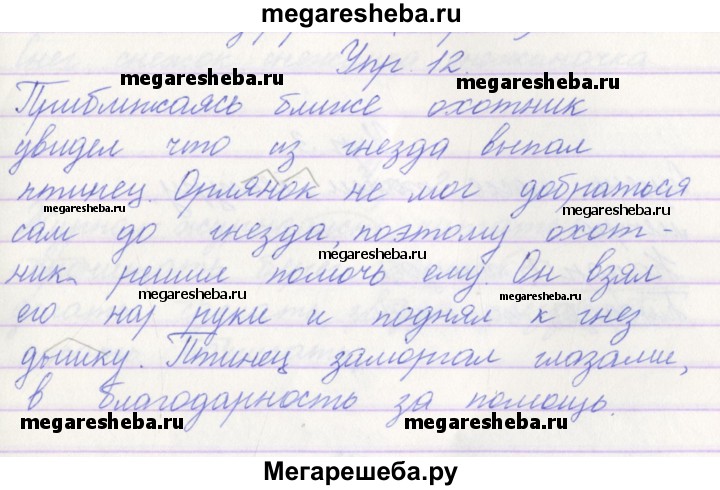 megaresheba.ru
Упр. 12.
megaresheba.ru
megaresheba.ru
Приближаясь ближе охотник
увидел что из гнезда выпал
птинец. Орлянок не мог добраться
megaresheba.ru
megaresheba.ru
сам до гнезда, поэтому охот-
ник решил помочь ему. Он взял
megaresheba.ru
megaresheba.ru
его на руки и поднял к гнез
дышку. Птинец заморгал глазами,
в благодарность за помощь.
megaresheba.ru
megaresheba.ru
Мегарешеба.ру